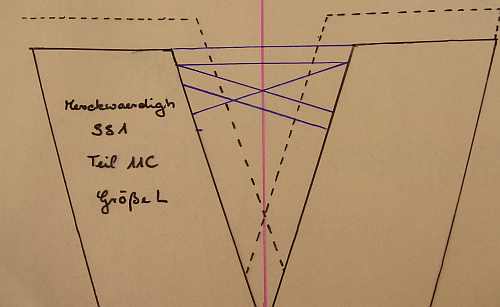 Merckwaerdigh
SS1
Teil 11C
Größe L